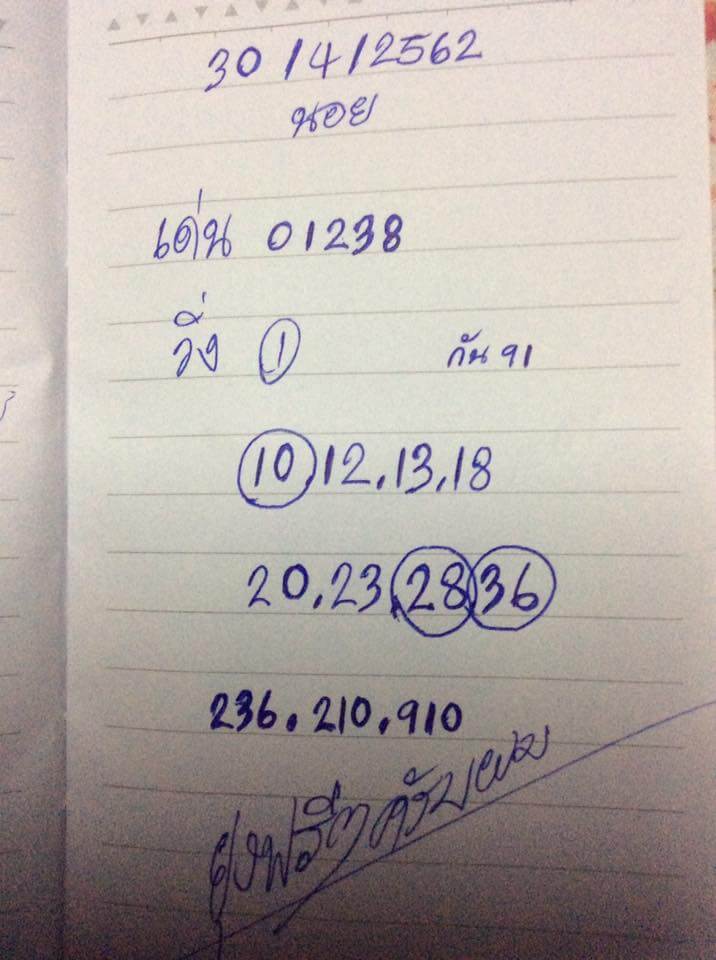 30/4/2562
นอย
เด่น 01238
วิ่ง 1 กัน 91
10.12.13.18
20.23.28 36
236.210.910
ฟรีๆครับผม